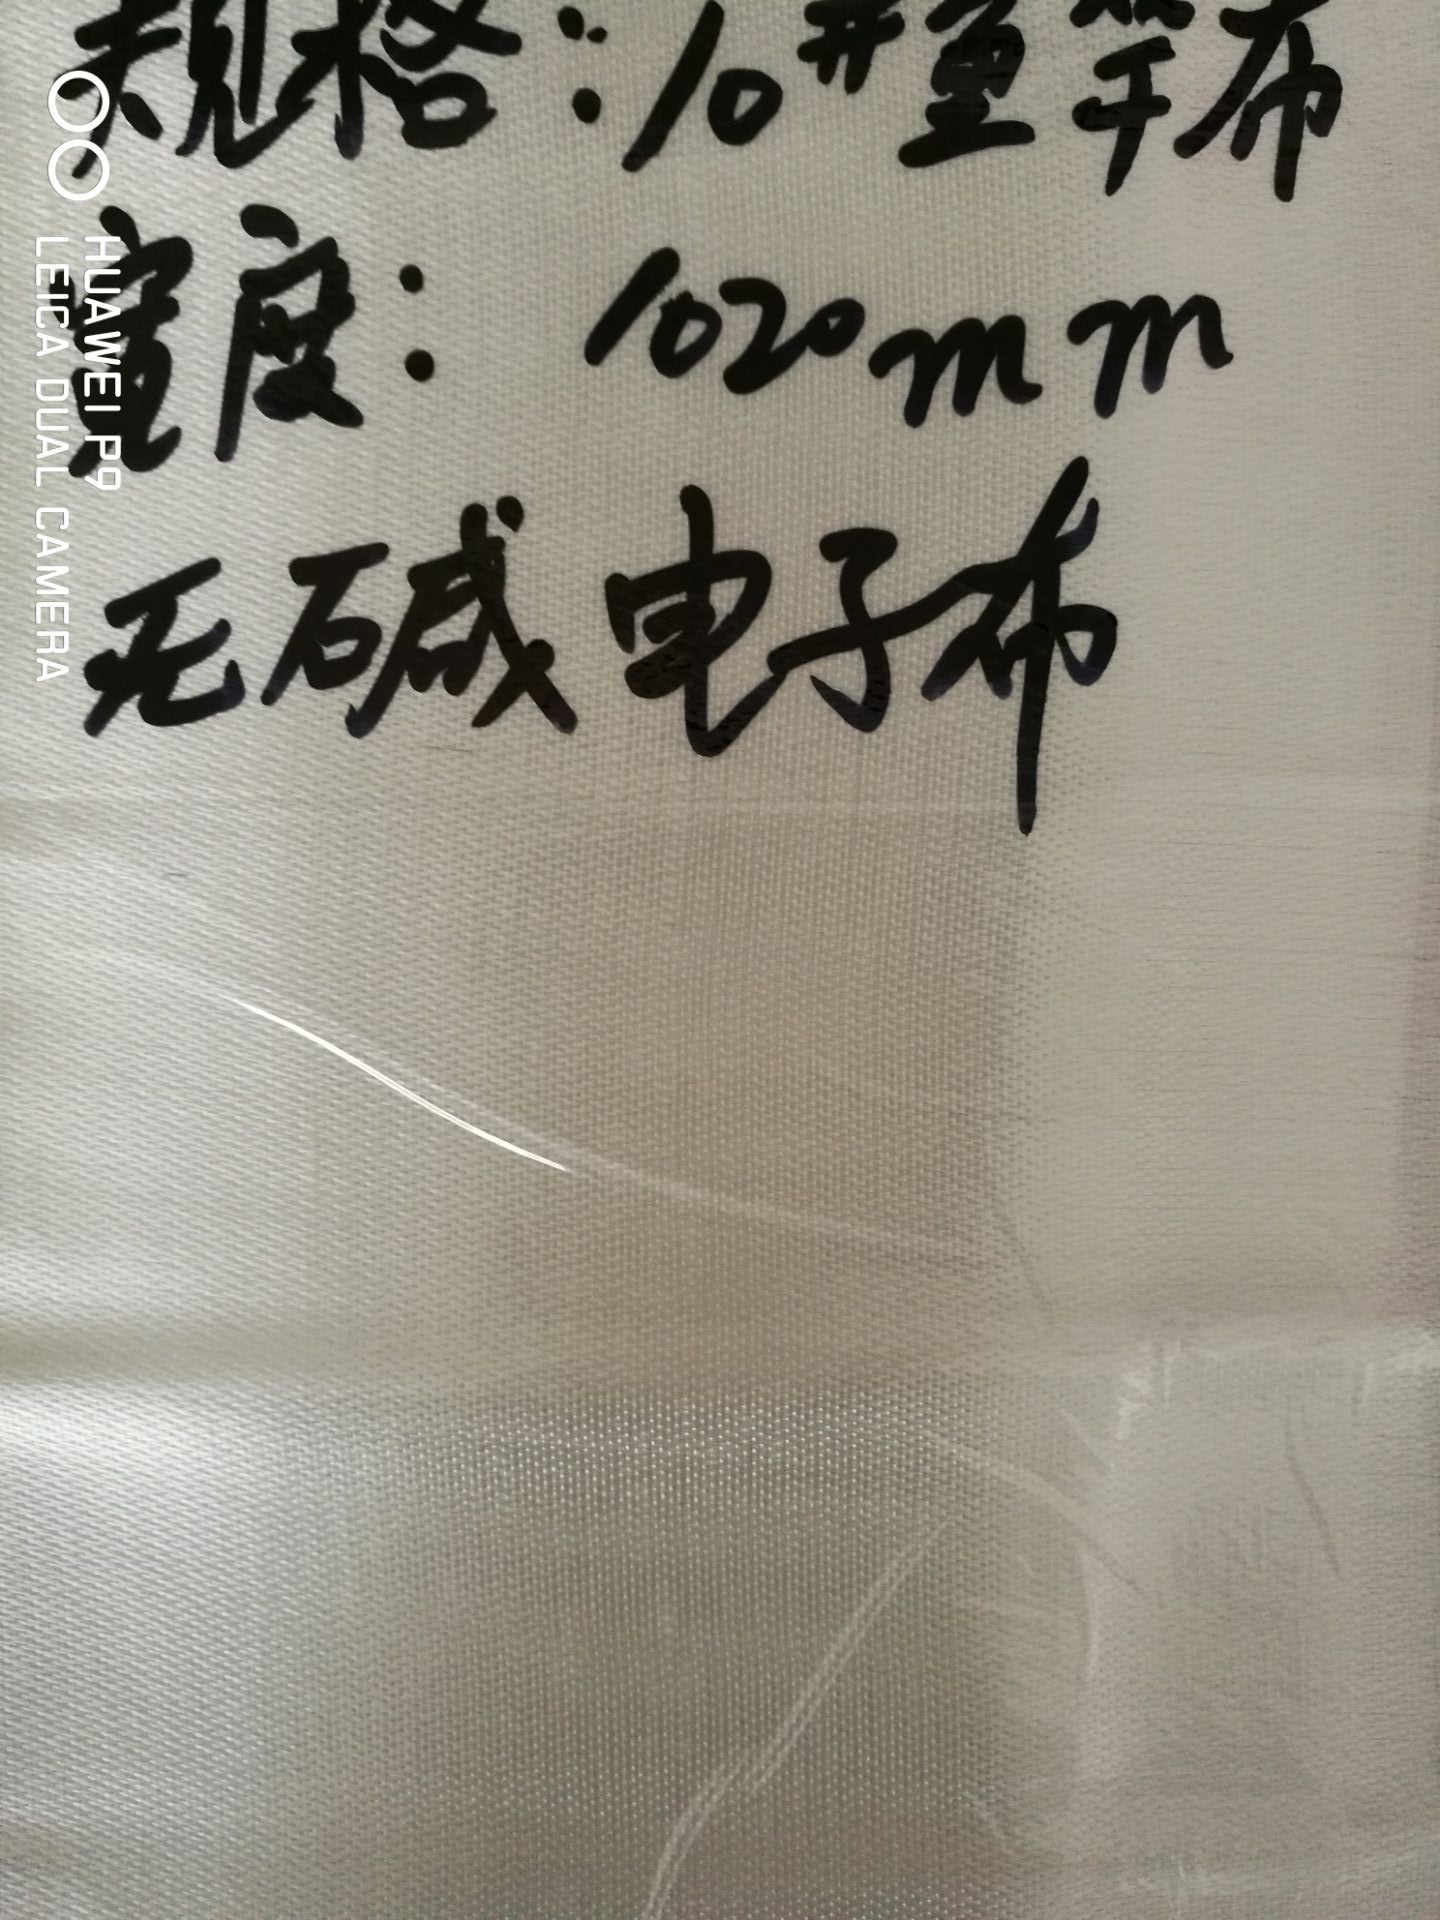 规格：10#鱼竿布
宽度：1020mm
无碱电子布
HUAWEI P9
LEICA DUAL CAMERA